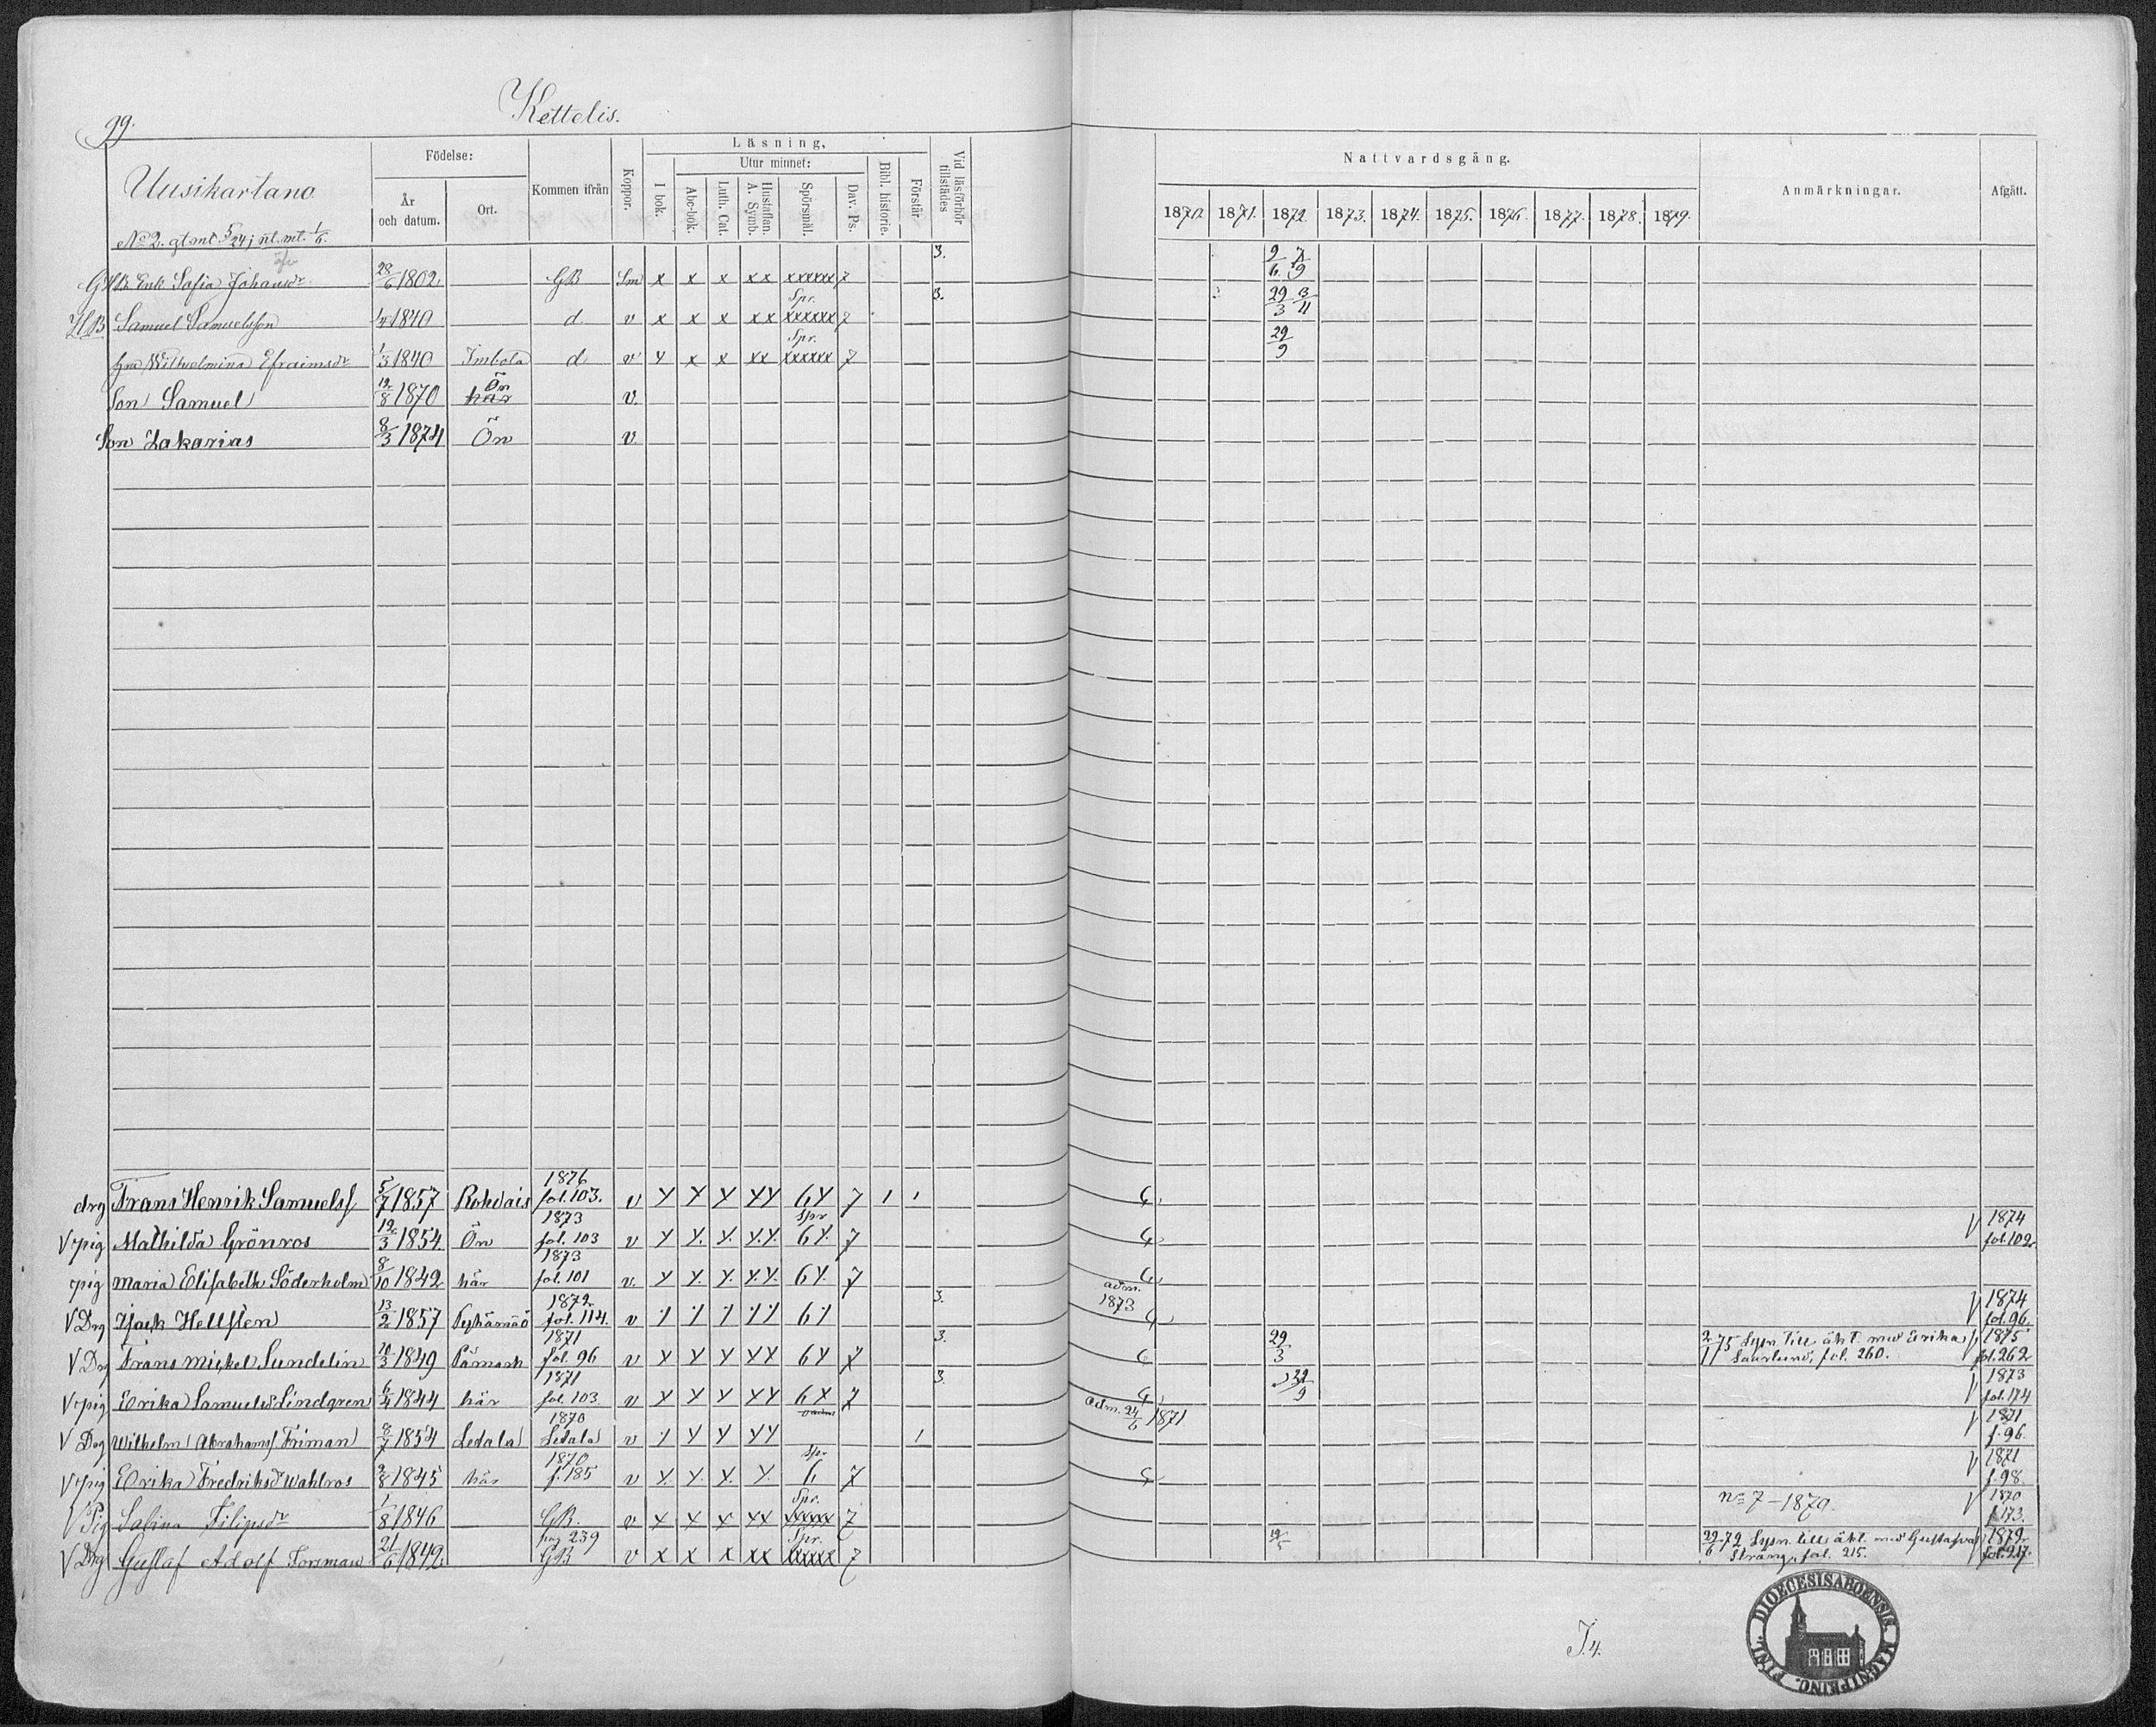 99.
Kettelis.
Uusikartano
No 2. gl. mt. 5/24; nl. mt. 1/6.
Födelse:
År och datum.
Ort.
Kommen ifrån
Koppor.
Läsning.
I bok.
Utur minnet:
Abc-bok.
Luth. Cat.
Hustaflan. A. Symb.
Spörsmål.
Dav. Ps.
Bibl. historie.
Förstår
Vid läsförhör tillstädes
Nattvardsgång.
1870. 1871. 1872. 1873. 1874. 1875. 1876. 1877. 1878. 1879.
Anmärkningar.
Afgått.
Enk. Sofia Johansdr 28/6 1802. GB Sm x x x xx xxxxxx 7 3. 9/6
HB Samuel Samuelsson 1840 d. v x x x xx Spr. xxxxxx 7 3. 29/3 3/11
Wilhelmina Efraimsdr 1/3 1840 Imbola d v x x x xx Spr. xxxxxx 7 29/9
Son Samuel 12/8 1870 här Ön v.
Son Zakarias 8/3 1874 Ön v.
drg Frans Henrik Samuelss. 5/7 1857 Rohdais 1876 fol. 103. v x x x xx 6x 7 1 1
V pig Mathilda Grönros 12/3 1854 Ön 1873 fol. 103 v x x. x. x.x. Spr 6x. 7 V 1874 fol. 102
pig Maria Elisabeth Söderholm 8/10 1842 här 1873 fol. 101 v. x x. x. x.x. 6x. 7
V Drg Isack Hellsten 13/2 1857 Pyhämaa 1872 fol. 114. v 6 3. adm. 1873 V 1874 fol. 96.
V Drg Frans Mickel Sundelin 10/3 1849 Pämark 1871 fol. 96 v x x x xx 6x 7 3. 29/3 2/11 75 Lysn. till äkt. med Erika Saarlund, fol. 260. V 1875 fol. 262
V pig Erika Samuelsd Lindgren 6/4 1844 här 1871 fol. 103 v x x x xx 6x 7 3. 29/9 V 1873 fol. 174
V Drg Wilhelm Abrahams. Friman 8/7 1854 Ledala 1870 Ledala v x x x xx 1 adm. 24/6 1871 V 1871 f. 96.
V pig Erika Fredriksd Wahlros 2/8 1845 här 1870 f. 185 v x. x. x. x. Spr 6 7 V 1871 f. 98
V Pig Sabina Filipsdr 1/8 1846 GB. v x x x xx Spr. xxxxx 7 No 7 - 1870. V 1870 f. 173.
V Drg Gustaf Adolf Forsman 21/6 1842 pag 239 GB v x x x xx Spr. xxxxx 7 29/6 72 Lysn. till äkt. med Gustafva Strang, fol. 215. 1872 fol. 217.
J. 4.
DIOECESIS ABOENSIS. MAGNI PRINC. FINL.